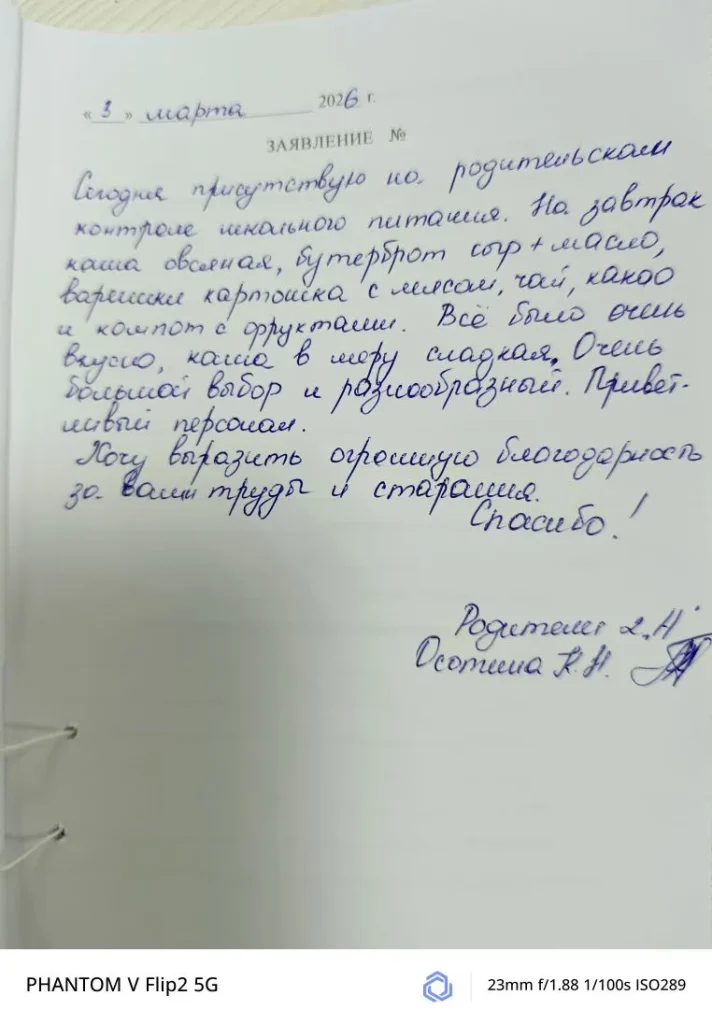 « 3 » марта 2026 г.
ЗАЯВЛЕНИЕ №
Сегодня присутствую на родительском
контроле школьного питания. На завтрак
каша овсяная, бутерброт сыр + масло,
вареники картошка с мясом, чай, какао
и компот с фруктами. Всё было очень
вкусно, каша в меру сладкая. Очень
большой выбор и разнообразный. Привет-
ливый персонал.
Хочу выразить огромную благодарность
за ваши труды и старания.
Спасибо!
Родитель 2 "Н"
Осотина К.Н.
PHANTOM V Flip2 5G
23mm f/1.88 1/100s ISO289